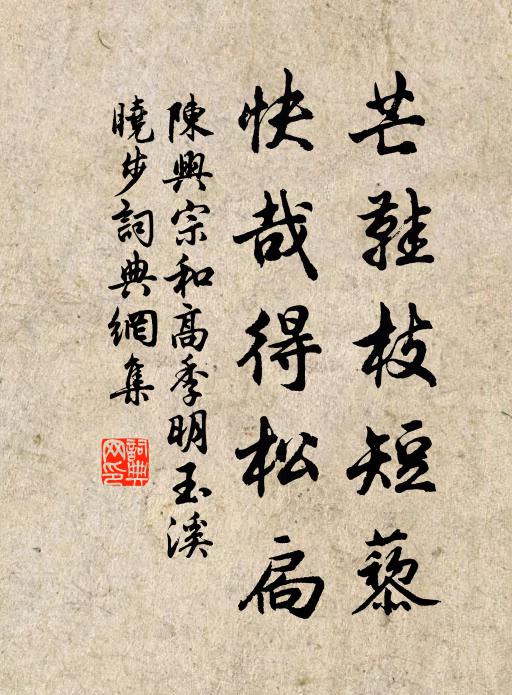 芒鞋枝短藜
快哉得松扃
陳興宗和高季明玉溪
曉步詞典網集
詞典网印